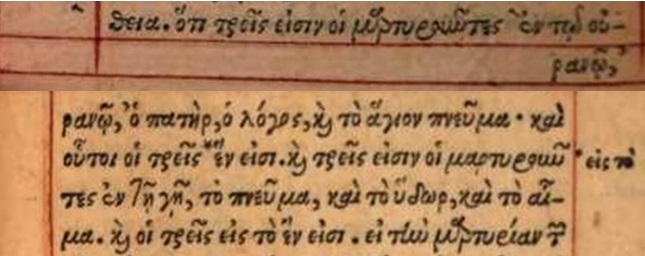 θεια. ὅτι τρεῖς εἰσιν οἱ μαρτυροῦντες ἐν τῷ οὐ-
ρανῷ,
ρανῷ, ὁ πατὴρ, ὁ λόγος, καὶ τὸ ἅγιον πνεῦμα· καὶ
οὗτοι οἱ τρεῖς ἕν εἰσι. καὶ τρεῖς εἰσιν οἱ μαρτυροῦν
τες ἐν τῇ γῇ, τὸ πνεῦμα, καὶ τὸ ὕδωρ, καὶ τὸ αἷ-
μα. καὶ οἱ τρεῖς εἰς τὸ ἕν εἰσι. εἰ τὴν μαρτυρίαν τῶν
εἰς τὸ